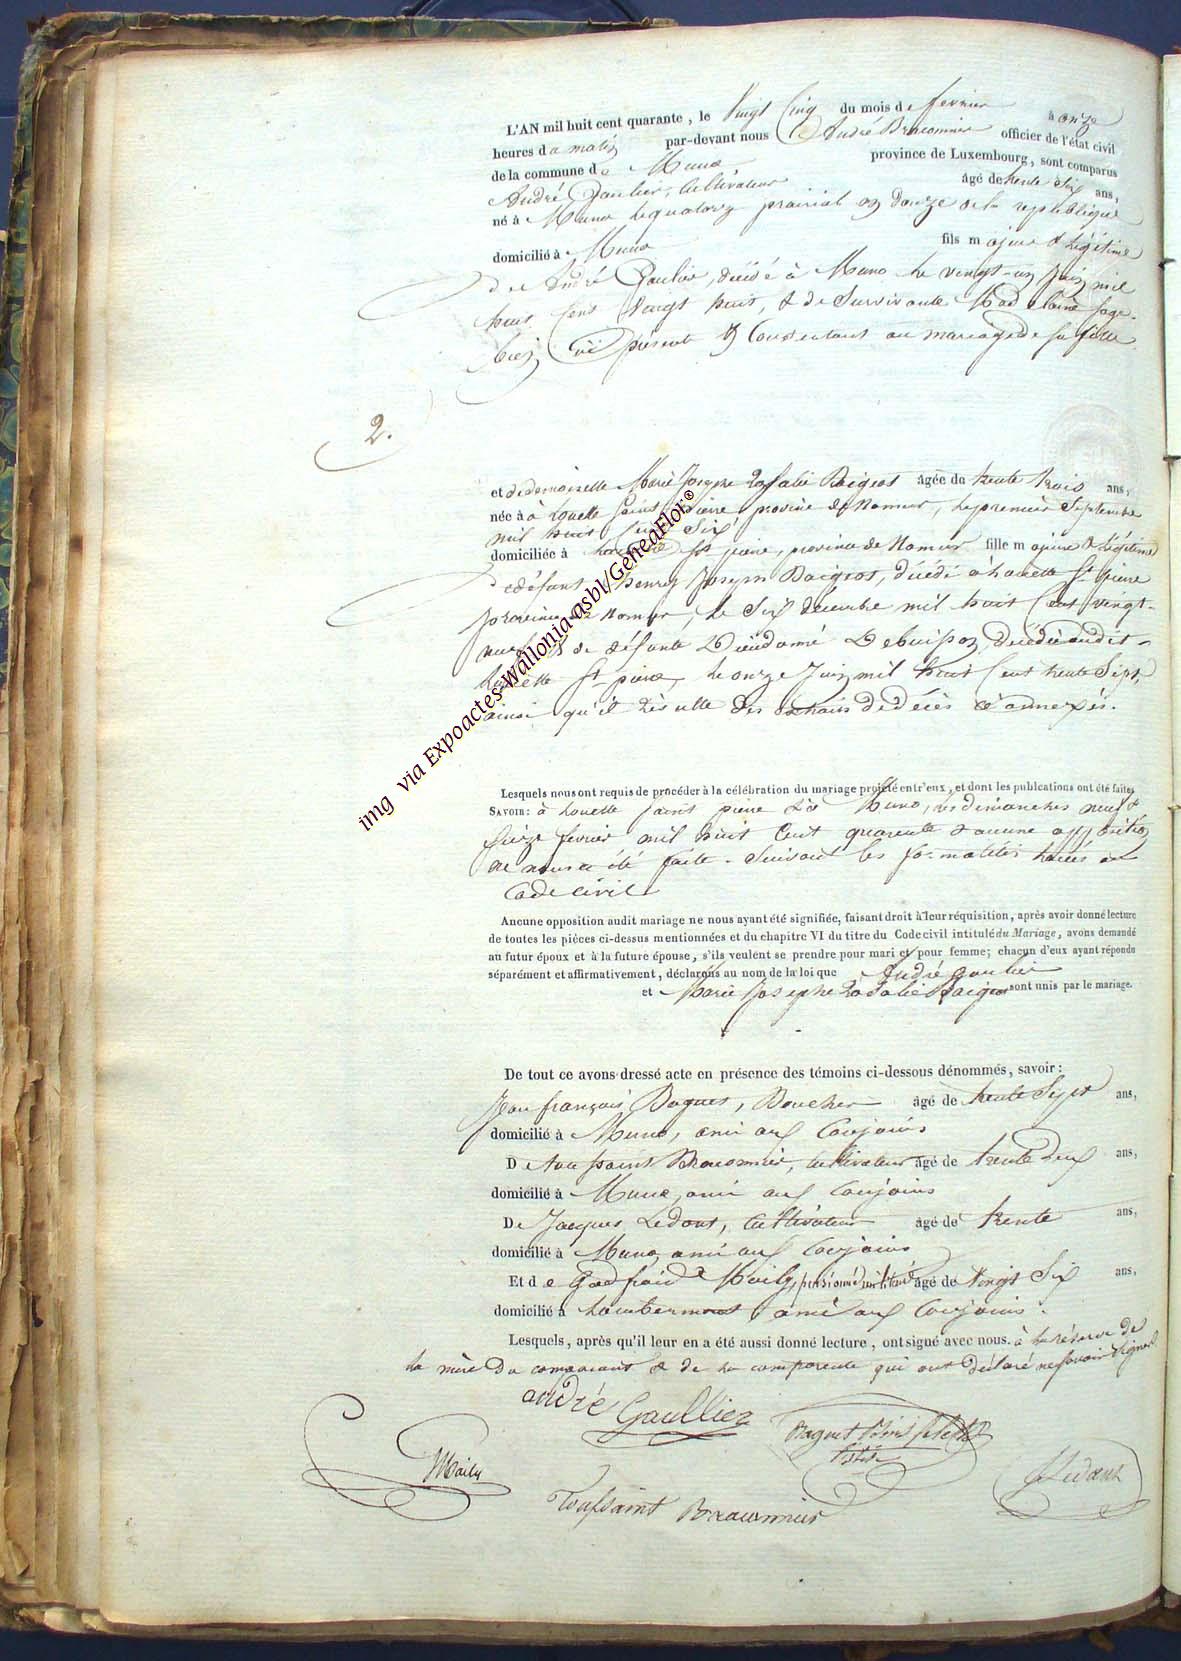 L'AN mil huit cent quarante, le vingt cinq du mois de fevrier à onze
heures du matin par-devant nous André Braconnier officier de l'état civil
de la commune de Muno province de Luxembourg, sont comparus
André Gaulier, cultivateur âgé de trente six ans,
né à Muno le quatorze prairial an douze de la republique
domicilié à Muno fils majeur & légitime
de André Gaulier, décédé à Muno le vingt-un juin mil
huit cent vingt huit, & de survivante Madelaine
ici présente & consentant au mariage de
2.
et de demoiselle Marie Josephe Rosalie Baiges âgée de trente trois ans,
née à à Louette Saint Pierre province de Namur, le premier septembre
mil huit cent six
domiciliée à Louette St pierre, province de Namur fille majeure & légitime
de défunt henry Joseph Baiges, décédé à Louette St pierre
province de Namur, le six décembre mil huit cent vingt-
& de défunte Dieudonné Debuisson, décédée audit-
Louette St pierre, le onze Juin mil huit cent trente sept,
ainsi qu'il résulte des extraits de décès ci annexés.
Lesquels nous ont requis de procéder à la célébration du mariage projeté entr'eux, et dont les publcations ont été faites
SAVOIR: à Louette saint pierre & à Muno, les dimanches neuf &
seize fevrier mil huit cent quarante & aucune opposition
ne nous a été faite. suivant les formalités au
Code civil
Aucune opposition audit mariage ne nous ayant été signifiée, faisant droit à leur réquisition, après avoir donné lecture
de toutes les pièces ci-dessus mentionnées et du chapitre VI du titre du Code civil intitulé du Mariage, avons demandé
au futur époux et à la future épouse, s'ils veulent se prendre pour mari et pour femme; chacun d'eux ayant répondu
séparément et affirmativement, déclarons au nom de la loi que André Gaulier
et Marie Josephe Rosalie Baiges sont unis par le mariage.
De tout ce avons dressé acte en présence des témoins ci-dessous dénommés, savoir:
Jean françois Baguet, Boucher âgé de trente sept ans,
domicilié à Muno, ami aux conjoins
De toussaint Braconnier, cultivateur âgé de trente deux ans,
domicilié à Muno, ami aux conjoins
De Jacques Ledant, cultivateur âgé de trente ans,
domicilié à Muno, ami aux conjoins
Et de Godfroid Mailly, pensionné militaire âgé de vingt six ans,
domicilié à Lambermont, ami aux conjoins.
Lesquels, après qu'il leur en a été aussi donné lecture, ont signé avec nous. à la réserve de
la mère du comparant & de la comparente qui ont déclaré ne savoir signer
andré Gaullier
Baguet
Mailly
Ledant
Toussaint Braconnier
img via Expoactes-Wallonia asbl/GeneaFlor®